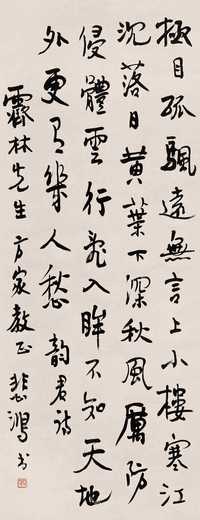 極目孤颿遠無言上小樓寒江
沉落日黃葉下深秋風厲防
侵體雲行竞入眸不知天地
外更有幾人愁 韻君詩
林先生方家教正 悲鴻書